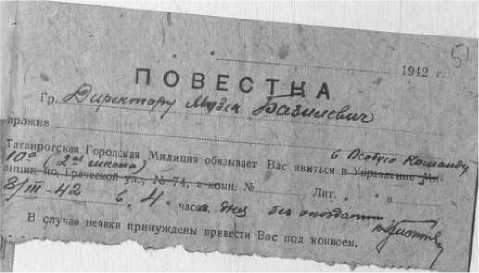 51
1942 г.
ПОВЕСТКА
Гр. Директору Музея Базилевич
прожив
в Особую Команду
Таганрогская Городская Милиция обязывает Вас явиться в Управление Ми-
10а (2ая школа)
лиции по Греческой ул., № 74, в комн. № Лит. в
8/III-42 в 4 часа дня без опоздания
В случае неявки принуждены привести Вас под конвоем.